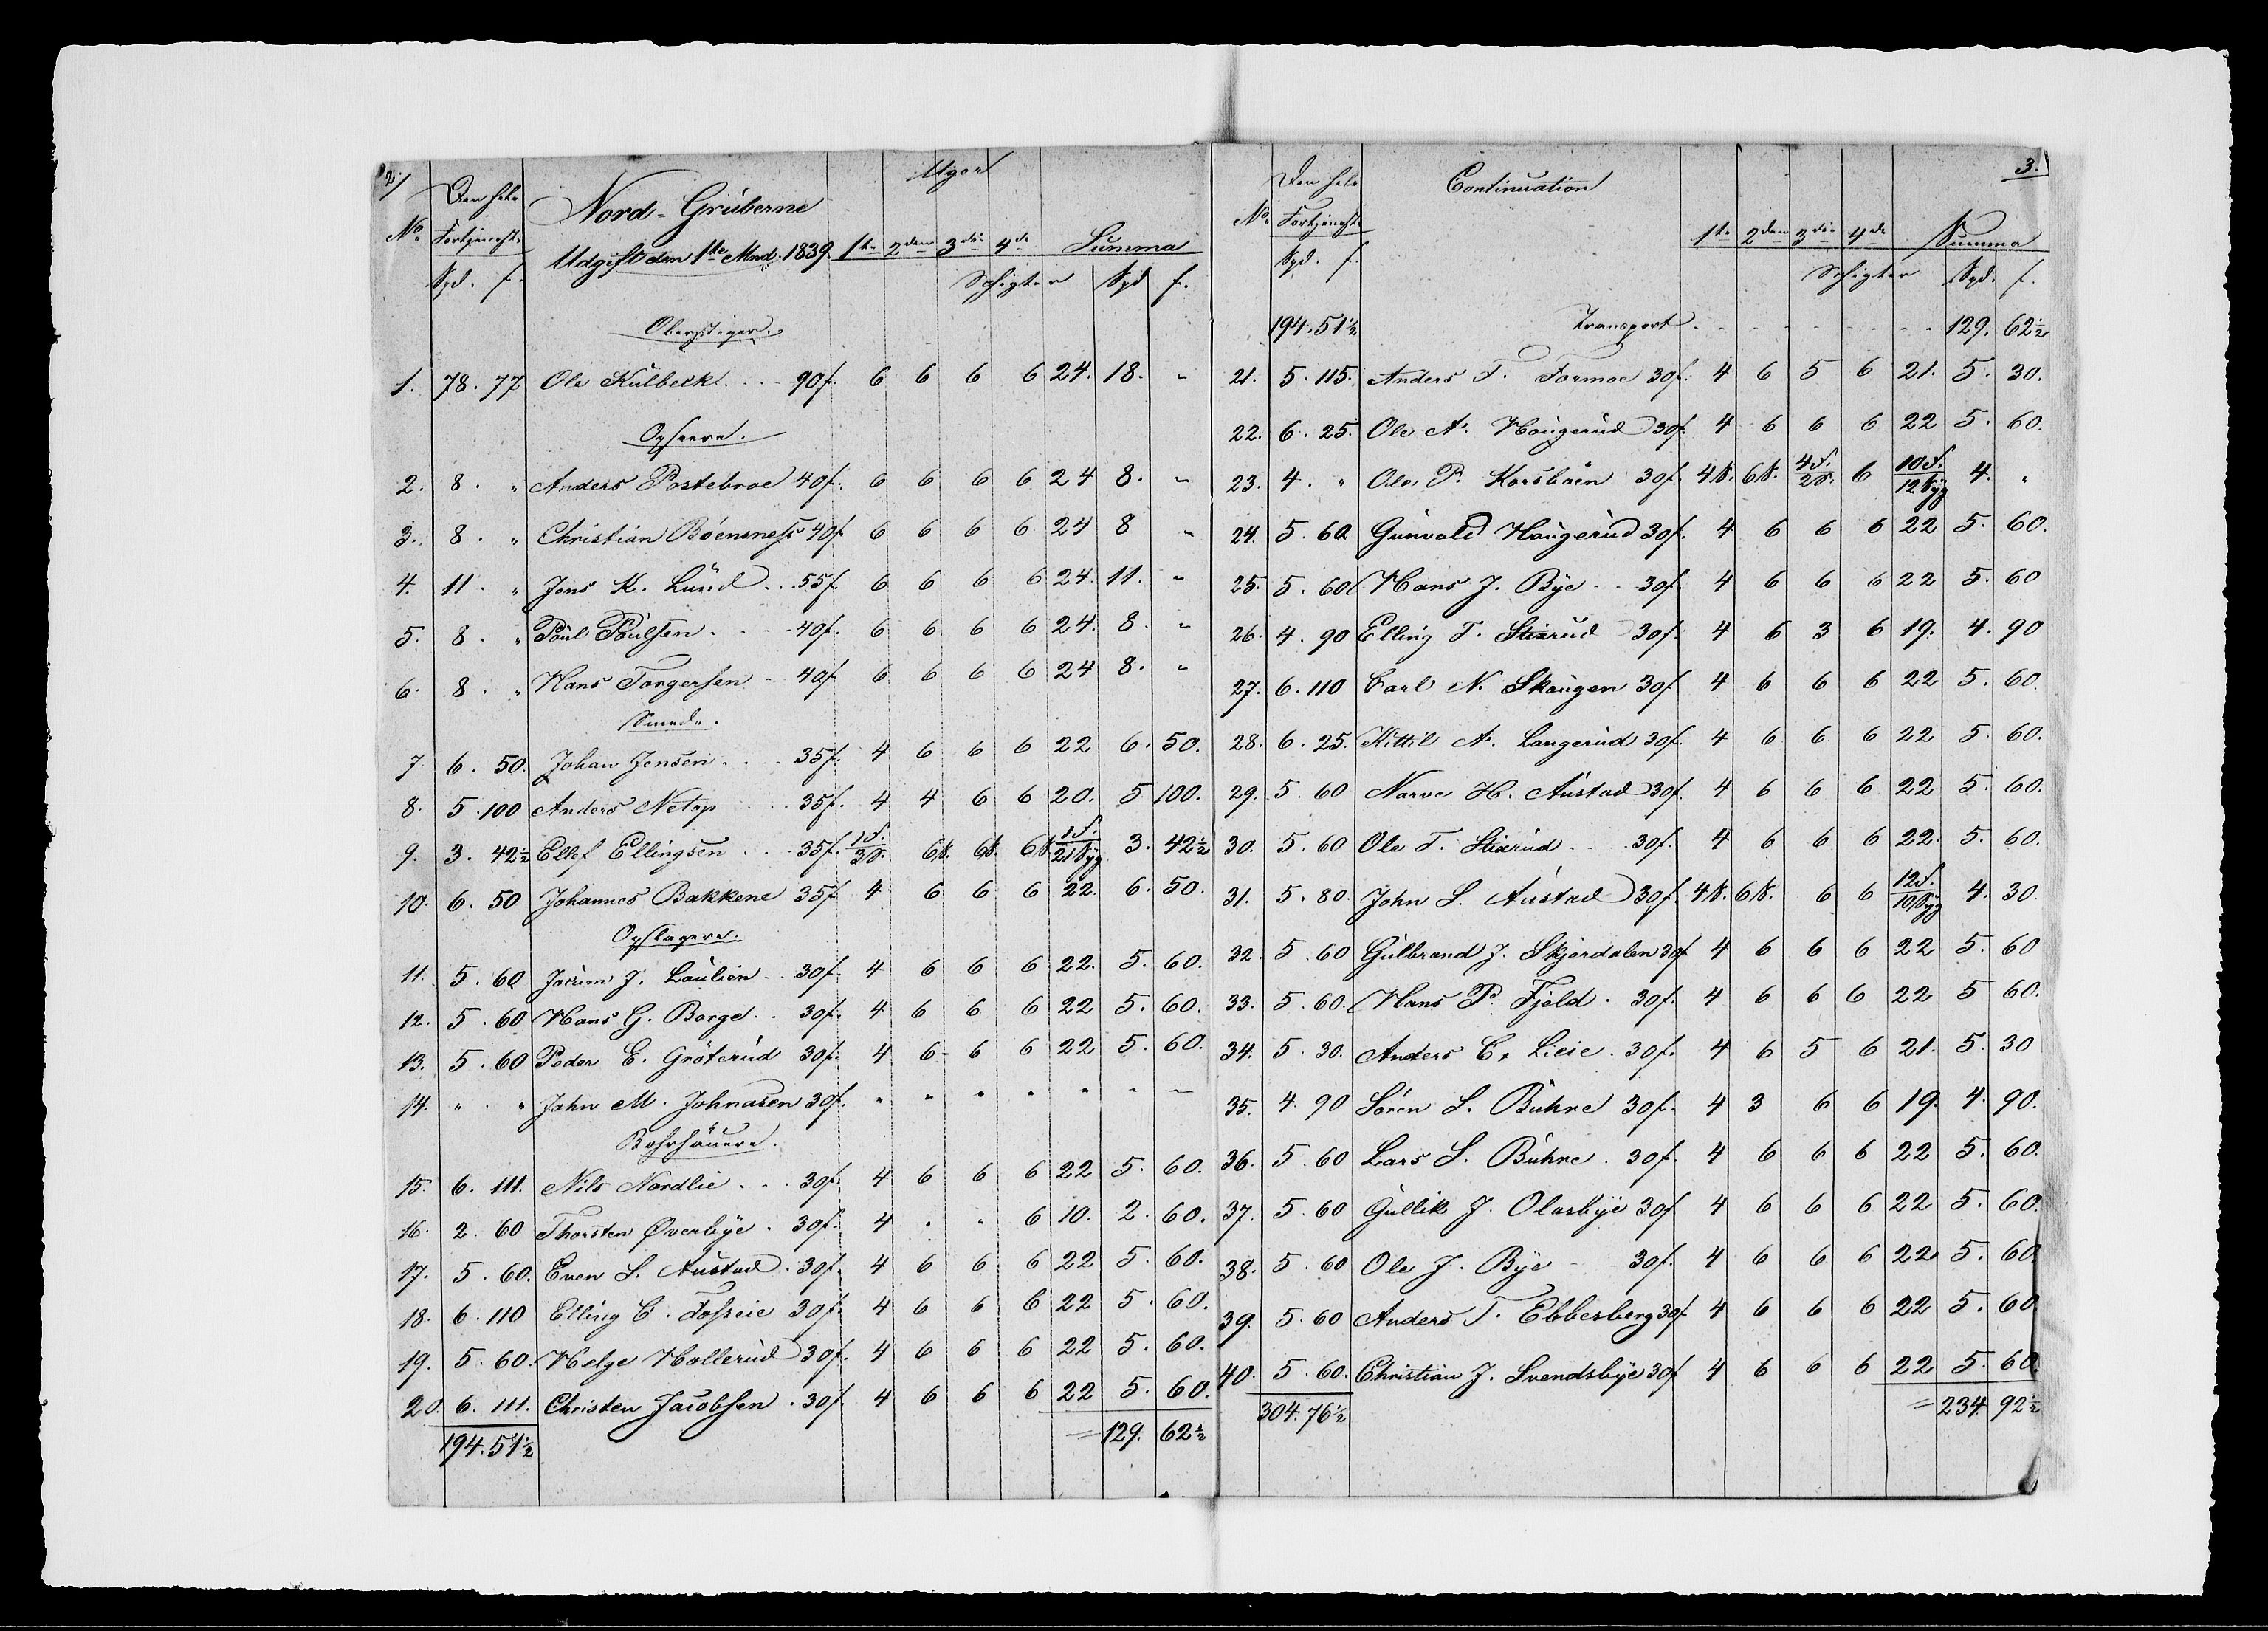 2/
Den hele Nord-Grüberne Uger
No. Fortjeneste Udgift den 1ste Mnd. 1839. 1ste 2den 3die 4de Summa
Spd. f. Schigter Spd f.
Oberstiger.
1. 78. 77 Ole Külbeck . . . 90f. 6 6 6 6 24. 18. "
Opseere.
2. 8. " Anders Postebroe 40f. 6 6 6 6 24 8. "
3. 8. " Christian Böensness 40f 6 6 6 6 24 8 "
4. 11. " Jens K. Lünd . . 55f. 6 6 6 6 24. 11. "
5. 8. " Poül Poülsen . . . 40f. 6 6 6 6 24. 8. "
6. 8. " Hans Torgersen . 40f 6 6 6 6 24 8. "
Smede.
7 6. 50. Johan Jensen . . . 35f. 4 6 6 6 22 6. 50.
8. 5. 100 Anders Netop . . . 35f. 4 4 6 6 20. 5 100.
9. 3. 42½ Ellef Ellingsen . . . 35f. 1S./3S. 6S. 6S. 6S 1S./21Syg 3. 42½
10. 6. 50 Johannes Bakkene 35f 4 6 6 6 22. 6. 50.
Opslagere.
11. 5. 60 Jocum J. Laülien . . 30f. 4 6 6 6 22. 5. 60.
12. 5. 60 Hans G. Borge . . 30f. 4 6 6 6 22 5. 60.
13. 5. 60 Peder E. Gröterüd 30f. 4 6 6 6 22 5. 60.
14. " " John M. Johnasen 30f. " " " " " " "
Bohrhäuere.
15. 6. 111. Nils Nordlie . . . 30f. 4 6 6 6 22 5. 60.
16. 2. 60 Thorsten Øverbÿe . 30f. 4 " " 6 10. 2. 60.
17. 5. 60. Even S. Aüstad . 30f. 4 6 6 6 22 5. 60.
18. 6. 110 Elling C. Fosseie 30f. 4 6 6 6 22 5. 60.
19. 5. 60. Helge Hollerüd 30f. 4 6 6 6 22 5. 60.
20. 6. 111. Christen Jacobsen . 30f 4 6 6 6 22 5. 60.
194. 51½ = 129. 62½
3.
Den hele Continuation
No. Fortjeneste 1ste 2den 3die 4de Summa
Spd. f. Schigter Spd. f.
194. 51½ Transport . . . 129. 62½
21. 5. 115. Anders T. Formoe 30f. 4 6 5 6 21. 5. 30.
22. 6. 25. Ole A. Haügerüd 30f. 4 6 6 6 22 5. 60.
23. 4. " Ole P. Korsböen 30f. 4S. 6S. 4S./2S. 6 10S./12Syg 4. "
24. 5. 60 Günvald Haügerüd 30f. 4 6 6 6 22 5. 60.
25. 5. 60 Hans J. Bÿe . . 30f. 4 6 6 6 22 5. 60
26. 4. 90 Elling T. Stiarüd 30f. 4 6 3 6 19. 4. 90
27. 6. 110 Carl N. Skoügen 30f. 4 6 6 6 22 5. 60.
28. 6. 25. Kittil A. Langerüd 30f. 4 6 6 6 22 5. 60.
29. 5. 60 Narve H. Aüstad 30f. 4 6 6 6 22 5. 60.
30. 5. 60 Ole T. Stiarüd . . . 30f. 4 6 6 6 22. 5. 60.
31. 5. 80. John S. Aüstad 30f. 4S. 6S. 6 6 12S./10Syg 4. 30
32. 5. 60 Gülbrand J. Skjerdalen 30f 4 6 6 6 22 5. 60
33. 5. 60. Hans P. Fjeld . 30f. 4 6 6 6 22 5 60.
34. 5. 30. Anders C. Lieie . 30f. 4 6 5 6 21. 5. 30
35. 4. 90 Sören S. Bühne 30f. 4 3 6 6 19. 4. 90.
36. 5. 60 Lars S. Bühne . 30f. 4 6 6 6 22 5. 60.
37. 5. 60 Güllik J. Olasbÿe 30f 4 6 6 6 22 5. 60.
38. 5. 60 Ole J. Bÿe . . 30f. 4 6 6 6 22 5. 60.
39. 5. 60 Anders T. Ebbesberg 30f 4 6 6 6 22 5. 60
40. 5. 60. Christian J. Svendsbÿe 30f 4 6 6 6 22 5. 60.
304. 76½ = 234 92½